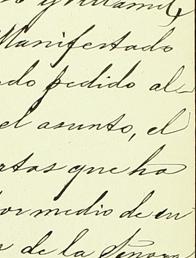 y
Manifestado
do pedido al
el asunto, el
rtas que ha
or medio de un
de la Señora